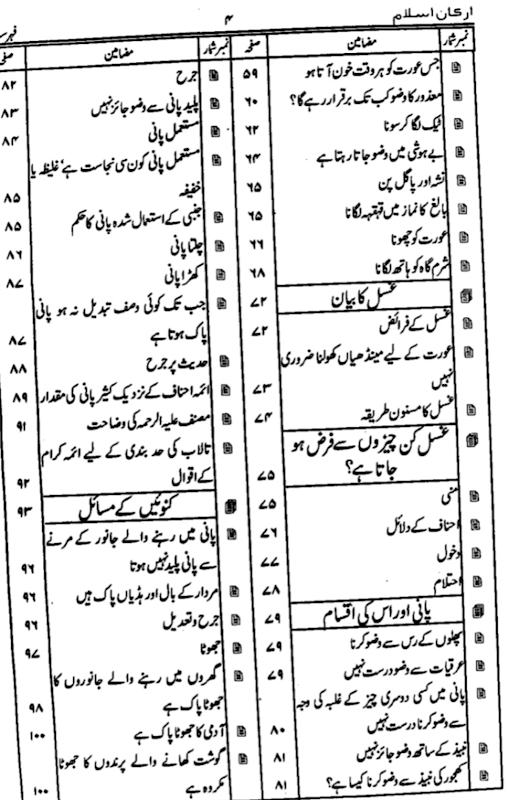 ارکان اسلام
۴
فہرست
نمبر شمار مضامین صفحہ
جس عورت کو ہر وقت خون آتا ہو ۵۹
معذور کا وضو کب تک برقرار رہے گا؟ ۶۰
ٹیک لگا کر سونا ۶۲
بے ہوشی میں وضو جاتا رہتا ہے ۶۴
نشہ اور پاگل پن ۶۵
بالغ کا نماز میں قہقہہ لگانا ۶۵
عورت کو چھونا ۶۶
شرم گاہ کو ہاتھ لگانا ۶۸
غسل کا بیان ۷۲
غسل کے فرائض ۷۲
عورت کے لیے مینڈھیاں کھولنا ضروری
نہیں ۷۳
غسل کا مسنون طریقہ ۷۴
غسل کن چیزوں سے فرض ہو
جاتا ہے؟ ۷۵
منی ۷۵
احناف کے دلائل ۷۶
دخول ۷۷
احتلام ۷۸
پانی اور اس کی اقسام ۷۹
پھلوں کے رس سے وضو کرنا ۷۹
عرقیات سے وضو درست نہیں ۷۹
پانی میں کسی دوسری چیز کے غلبہ کی وجہ
سے وضو کرنا درست نہیں ۸۰
نبیذ کے ساتھ وضو جائز نہیں ۸۱
کھجور کی نبیذ سے وضو کرنا کیسا ہے؟ ۸۱
نمبر شمار مضامین صفحہ
جرح ۸۲
پلید پانی سے وضو جائز نہیں ۸۳
مستعمل پانی ۸۴
مستعمل پانی کون سی نجاست ہے' غلیظہ یا
خفیفہ ۸۵
جنبی کے استعمال شدہ پانی کا حکم ۸۵
چلتا پانی ۸۶
کھڑا پانی ۸۷
جب تک کوئی وصف تبدیل نہ ہو پانی
پاک ہوتا ہے ۸۷
حدیث پر جرح ۸۸
ائمہ احناف کے نزدیک کثیر پانی کی مقدار ۸۹
مصنف علیہ الرحمہ کی وضاحت ۹۱
تالاب کی حد بندی کے لیے ائمہ کرام
کے اقوال ۹۲
کنوئیں کے مسائل ۹۳
پانی میں رہنے والے جانور کے مرنے
سے پانی پلید نہیں ہوتا ۹۶
مردار کے بال اور ہڈیاں پاک ہیں ۹۶
جرح و تعدیل ۹۶
جھوٹا ۹۷
گھروں میں رہنے والے جانوروں کا
جھوٹا پاک ہے ۹۸
آدمی کا جھوٹا پاک ہے ۱۰۰
گوشت کھانے والے پرندوں کا جھوٹا
مکروہ ہے ۱۰۰